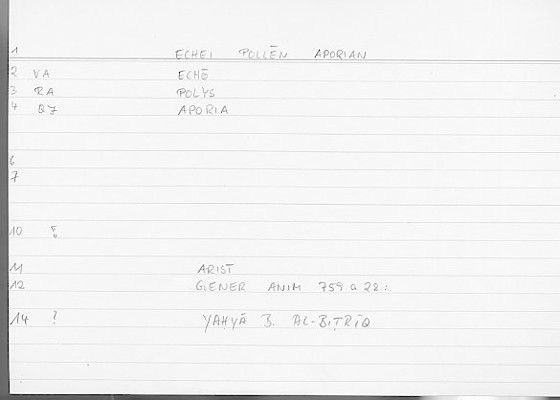 1 ECHEI POLLĒN APORIAN
2 VA ECHŌ
3 RA POLYS
4 QZ APORIA
6
7
10
11 ARIST
12 GENER ANIM 759 a 28:
14 ? YAḤYĀ B. AL-BIṬRĪQ